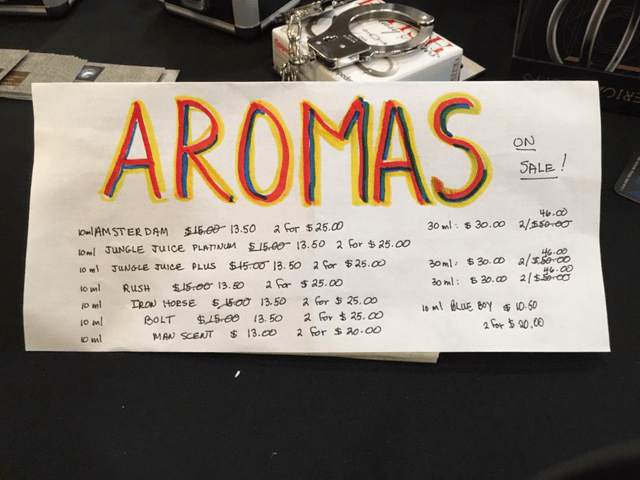 AROMAS
ON
SALE!
10ml AMSTERDAM $15.00 13.50 2 for $25.00 30ml: $30.00 2/$50.00 46.00
10ml JUNGLE JUICE PLATINUM $15.00 13.50 2 for $25.00
10ml JUNGLE JUICE PLUS $15.00 13.50 2 for $25.00 30ml: $30.00 2/$50.00 46.00
10ml RUSH $15.00 13.50 2 for $25.00 30ml: $30.00 2/$50.00 46.00
10ml IRON HORSE $15.00 13.50 2 for $25.00
10ml BOLT $15.00 13.50 2 for $25.00
10ml MAN SCENT $13.00 2 for $20.00
10ml BLUE BOY $10.50
2 for $20.00